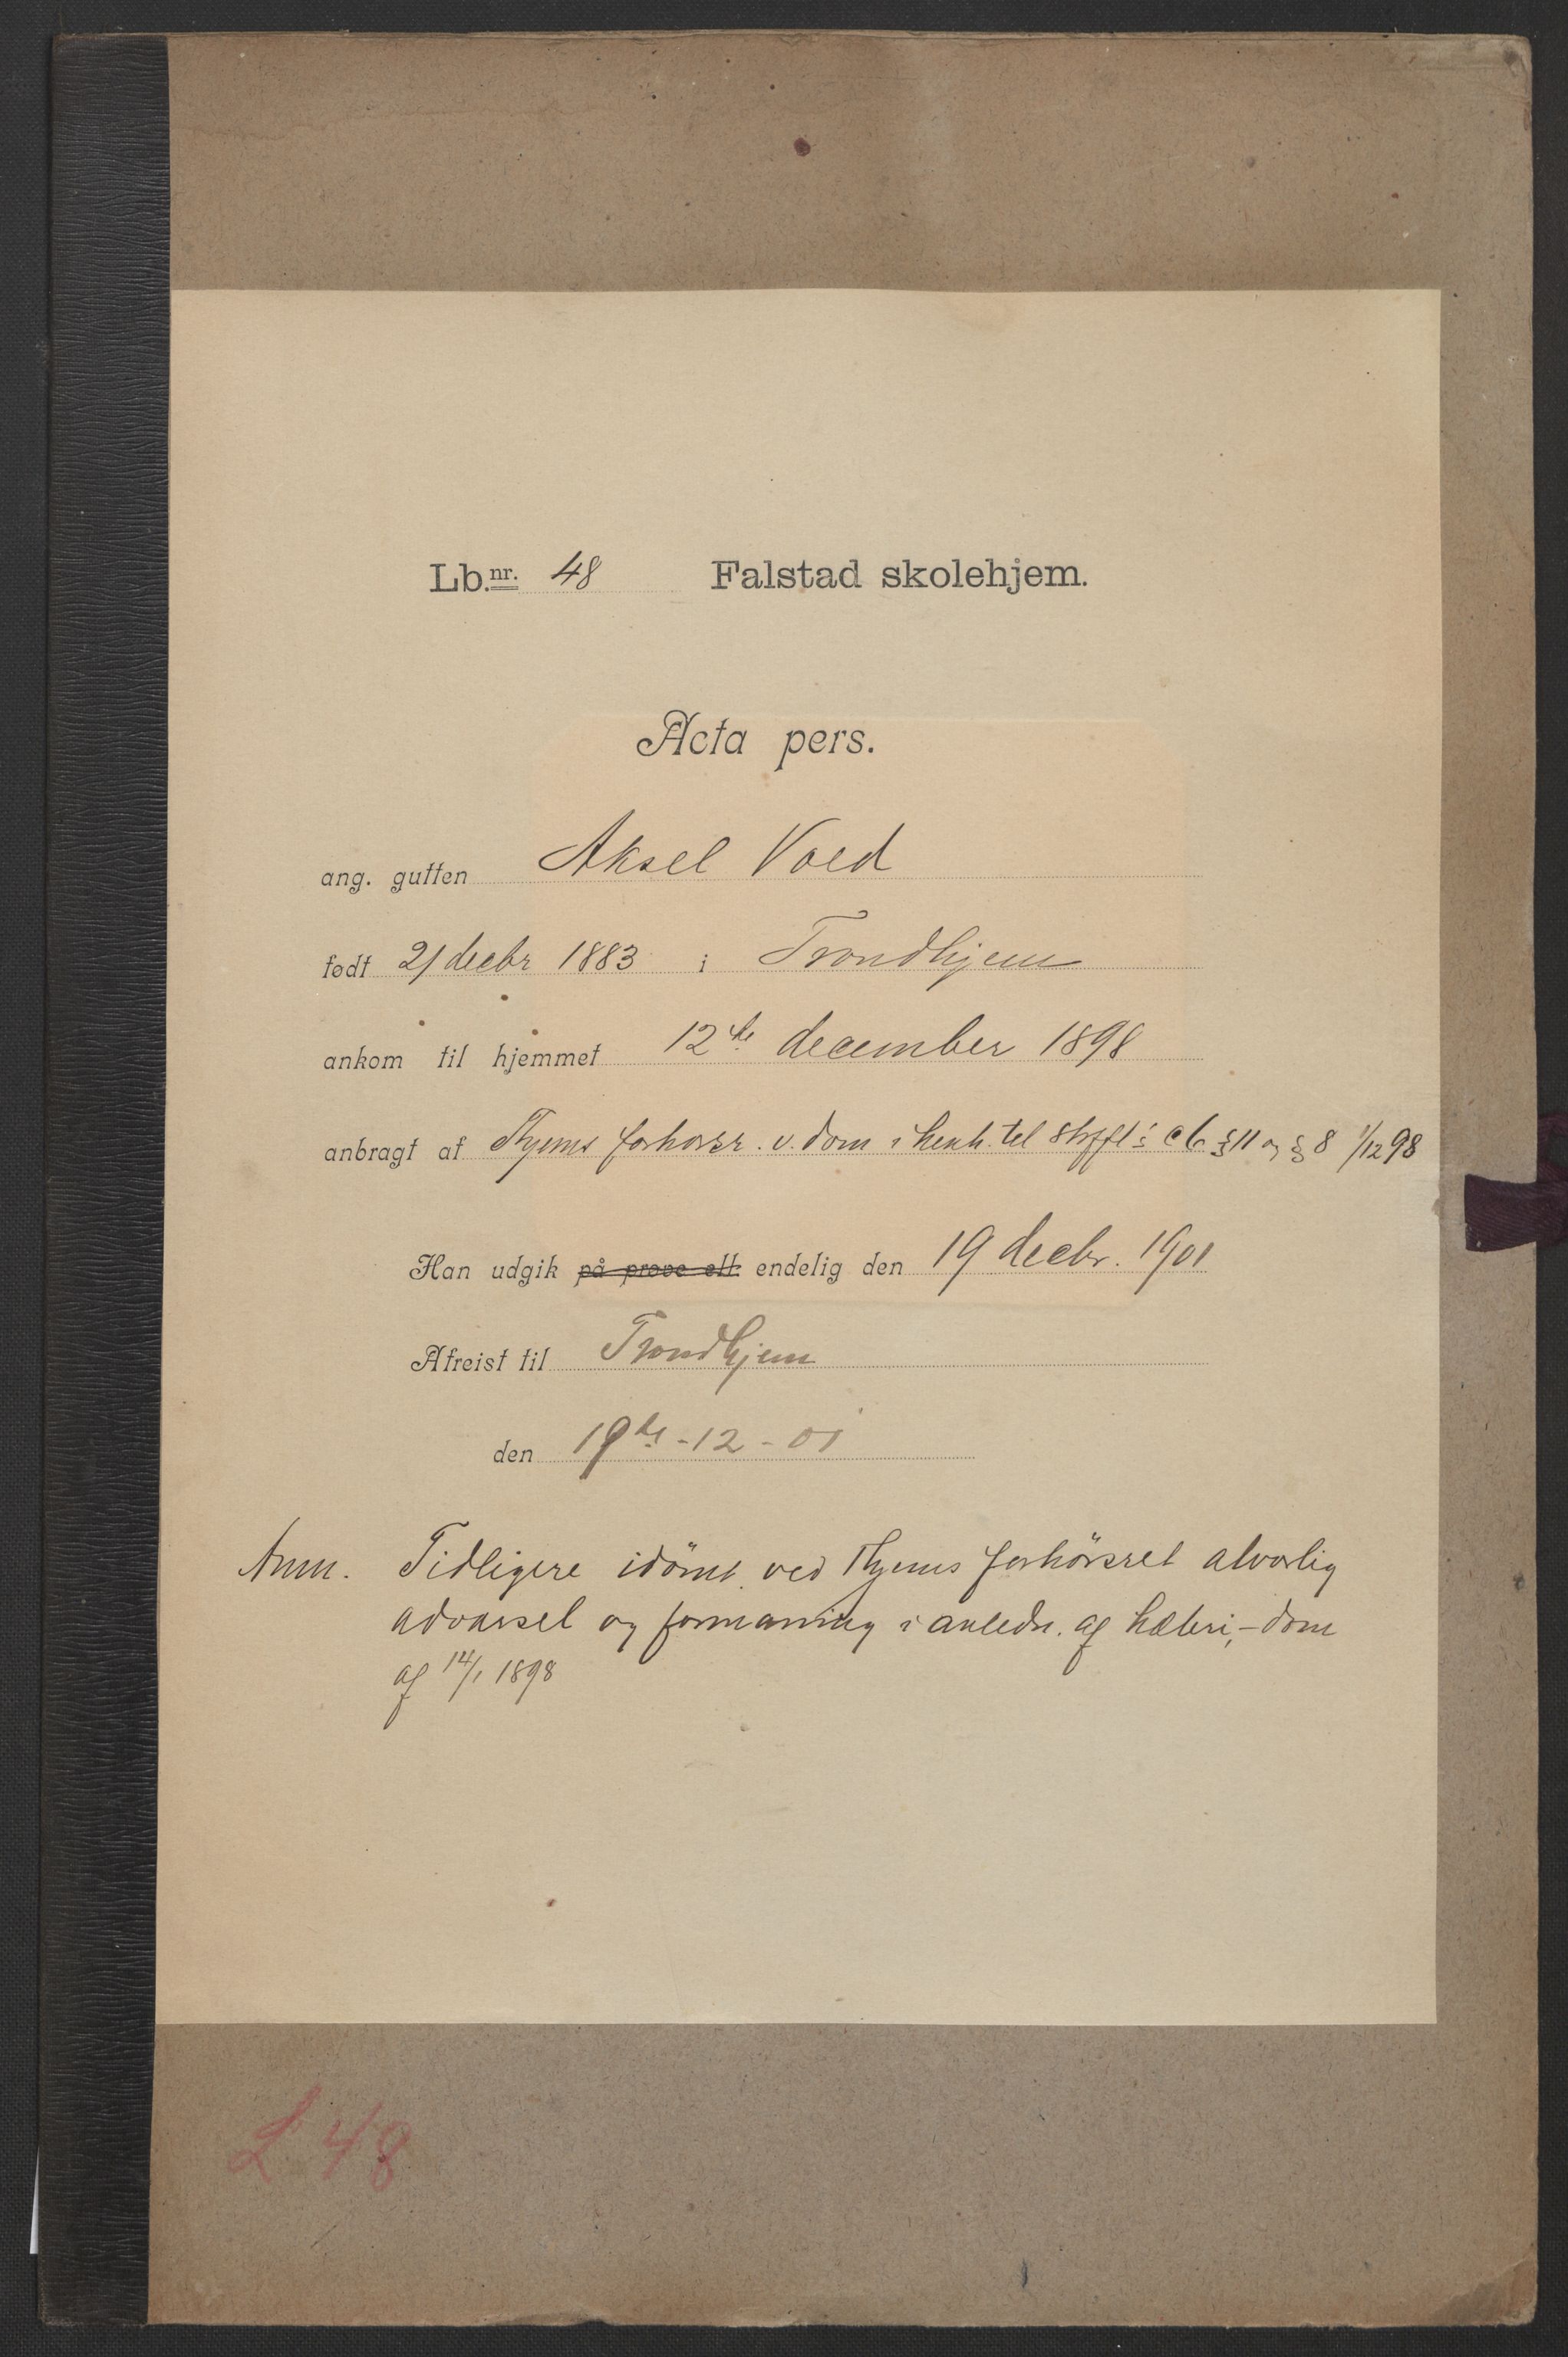 Lb.nr. 48 Falstad skolehjem.
Acta pers.
ang. gutten Aksel Vold
født 21 decbr 1883 i Trondhjem
ankom til hjemmet 12te december 1898
anbragt af Thjems forhørsr. v. dom i henh. til c 6 § 11 og § 8 1/12 98
Han udgik på prøve ell. endelig den 19 decbr. 1901
Afreist til Trondhjem
den 19de -12 - 01
Anm. Tidligere idömt ved Thjems forhörsret alvorlig
advarsel og formaning i anledn. af hæleri, - dom
af 14/1 1898
L 48